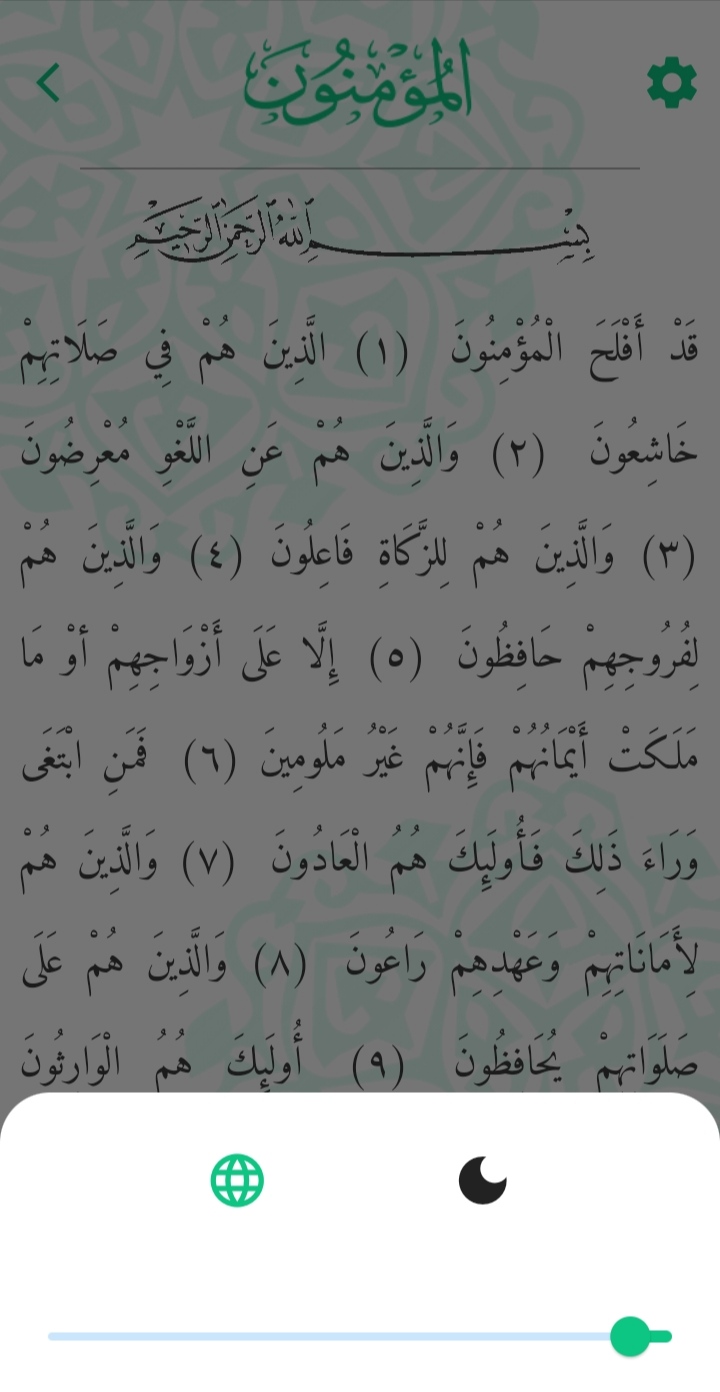 المُؤْمِنُونَ
بِسْمِ اللَّهِ الرَّحْمَنِ الرَّحِيمِ
قَدْ أَفْلَحَ الْمُؤْمِنُونَ (١) الَّذِينَ هُمْ فِي صَلَاتِهِمْ
خَاشِعُونَ (٢) وَالَّذِينَ هُمْ عَنِ اللَّغْوِ مُعْرِضُونَ
(٣) وَالَّذِينَ هُمْ لِلزَّكَاةِ فَاعِلُونَ (٤) وَالَّذِينَ هُمْ
لِفُرُوجِهِمْ حَافِظُونَ (٥) إِلَّا عَلَى أَزْوَاجِهِمْ أوْ مَا
مَلَكَتْ أَيْمَانُهُمْ فَإِنَّهُمْ غَيْرُ مَلُومِينَ (٦) فَمَنِ ابْتَغَى
وَرَاءَ ذَلِكَ فَأُولَئِكَ هُمُ الْعَادُونَ (٧) وَالَّذِينَ هُمْ
لِأَمَانَاتِهِمْ وَعَهْدِهِمْ رَاعُونَ (٨) وَالَّذِينَ هُمْ عَلَى
صَلَوَاتِهِمْ يُحَافِظُونَ (٩) أُولَئِكَ هُمُ الْوَارِثُونَ